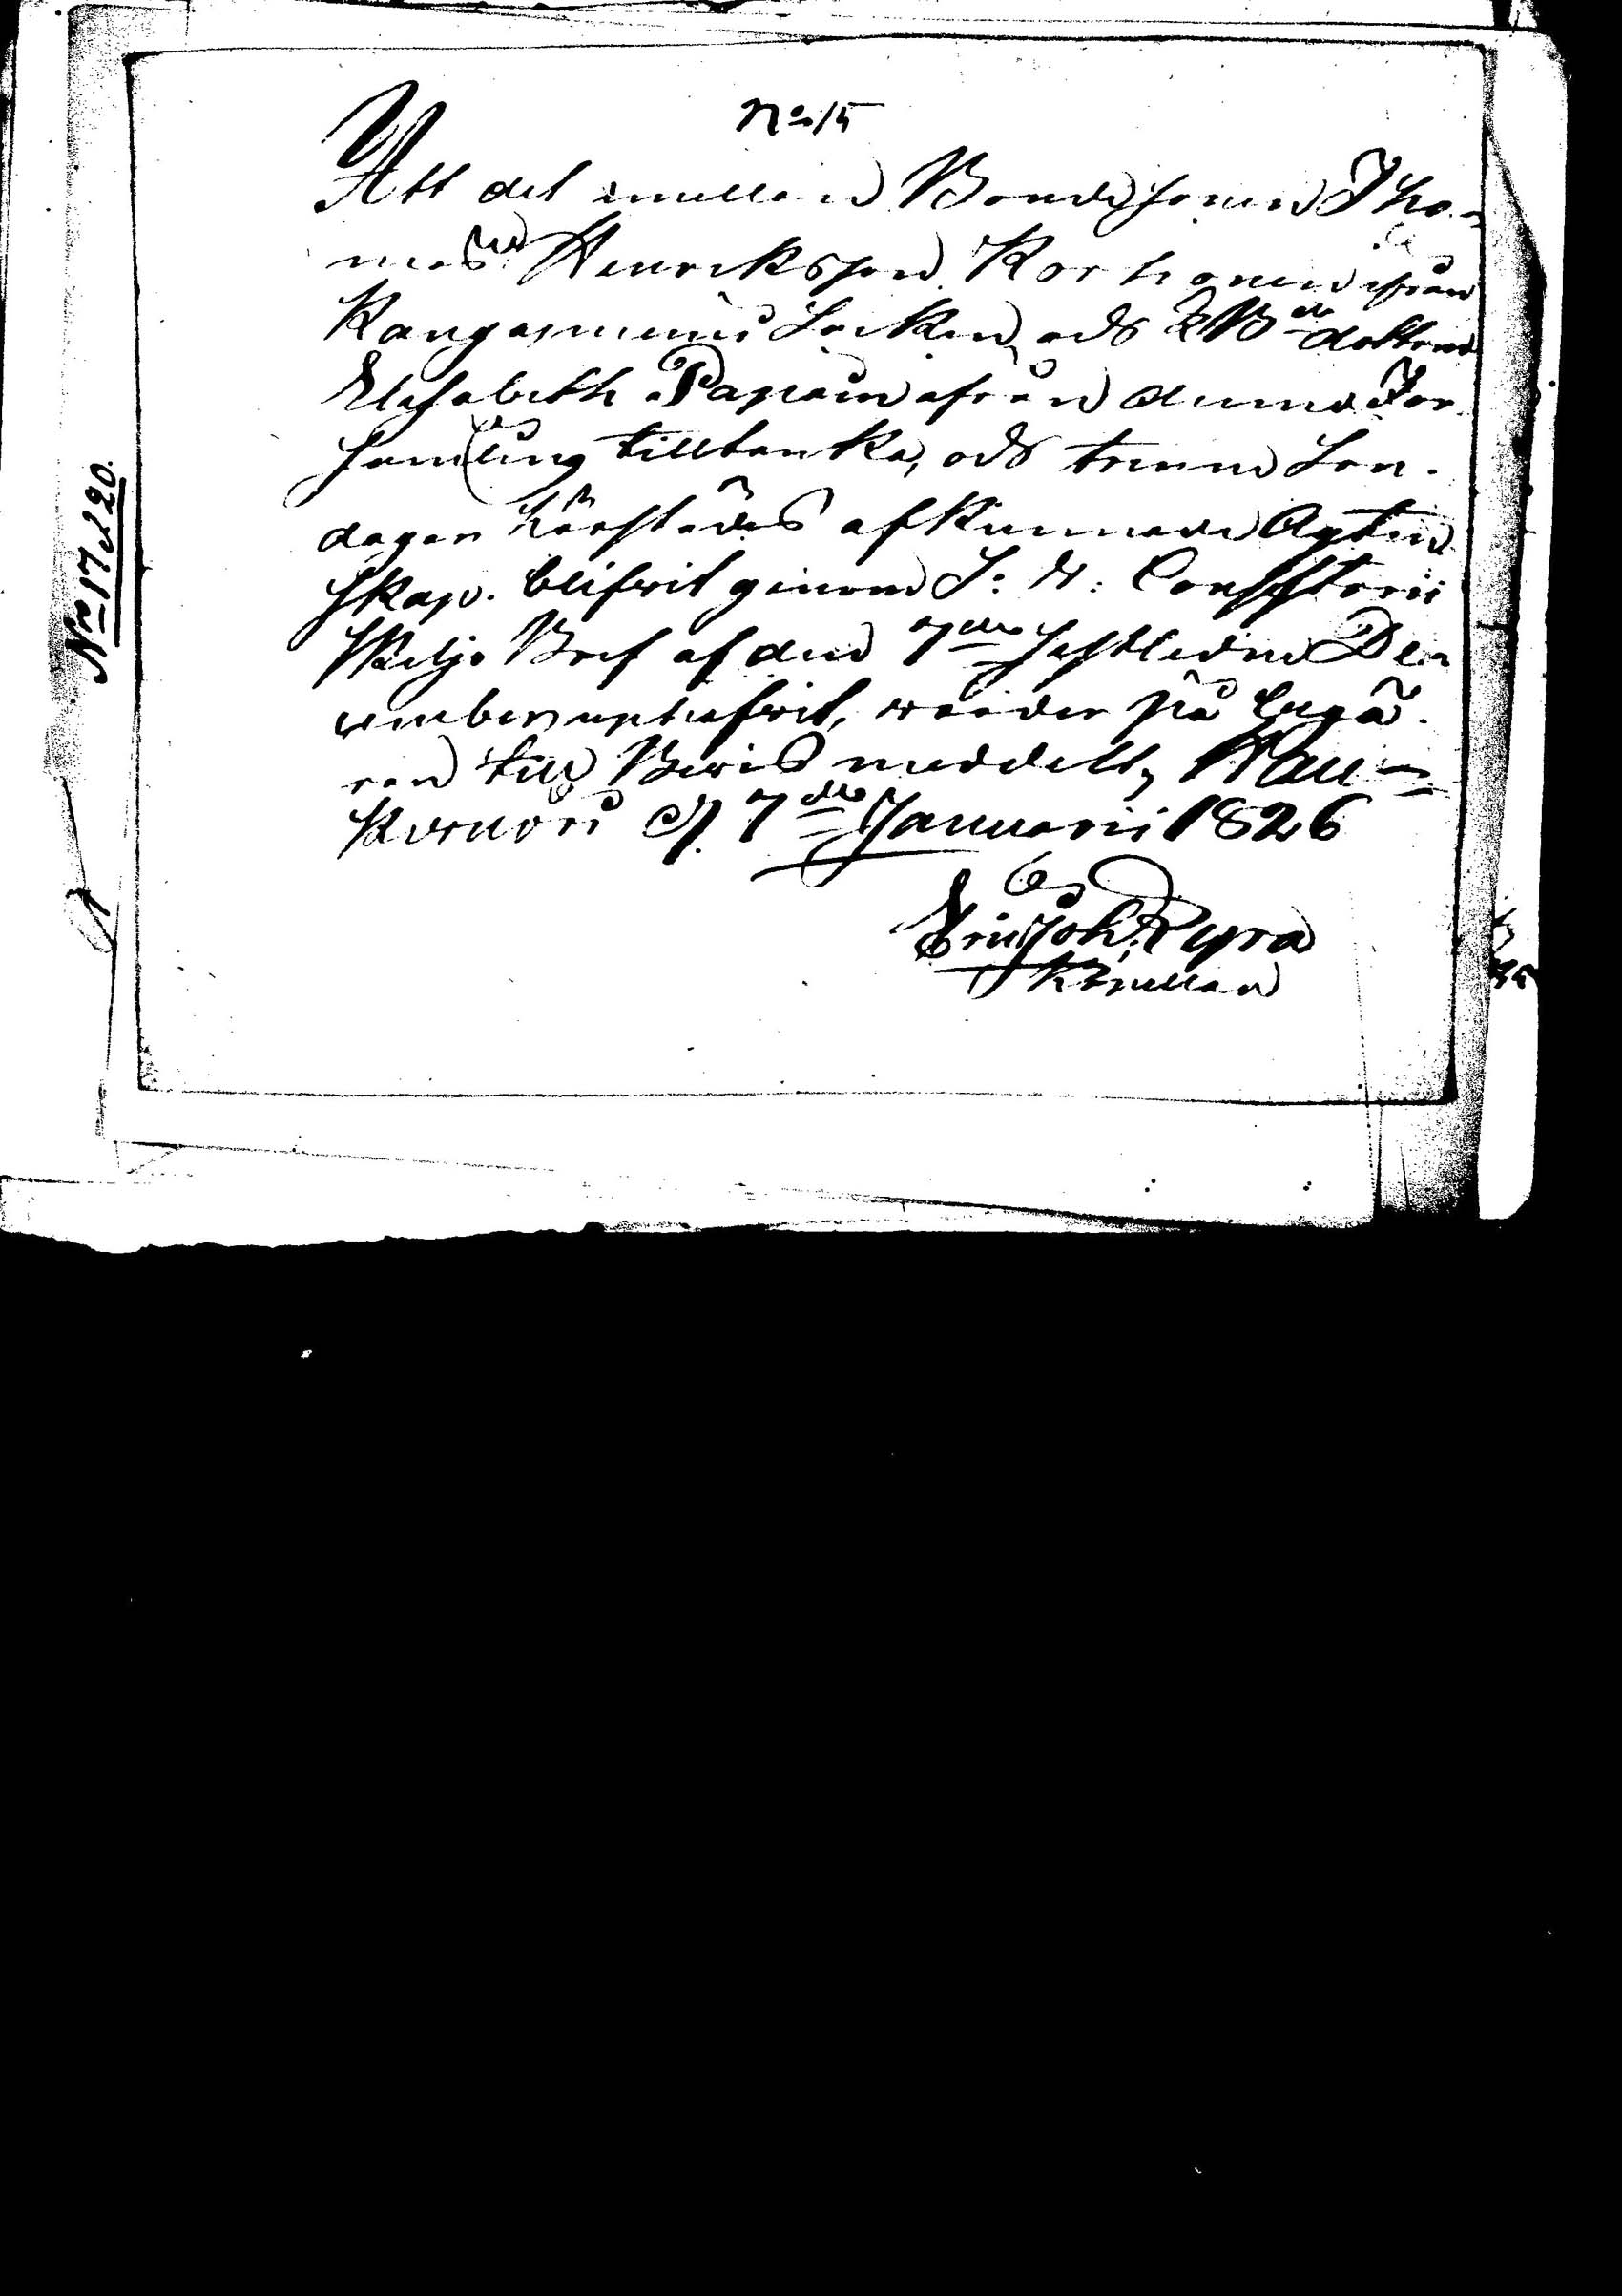 No 15
Att det emellan Bondesonen Tho-
mas Henriksson Korhonen ifrån
Kangasniemi Socken och Bdedottren
Elisabeth Papain ifrån denna För
samling tilltänkta, och trenne Sön-
dagar härstädes afkunnade Ägten-
skap. blifvit genom S: V: Consistorii
Skiljo Bref af den 7de sistledne De-
cember upphäfvit, varder på begä-
ran till Bevis meddelt, Hau-
kivuori d. 7de Januarii 1826
Eric Joh. Pyra
Kapellan
No 17 & 20.